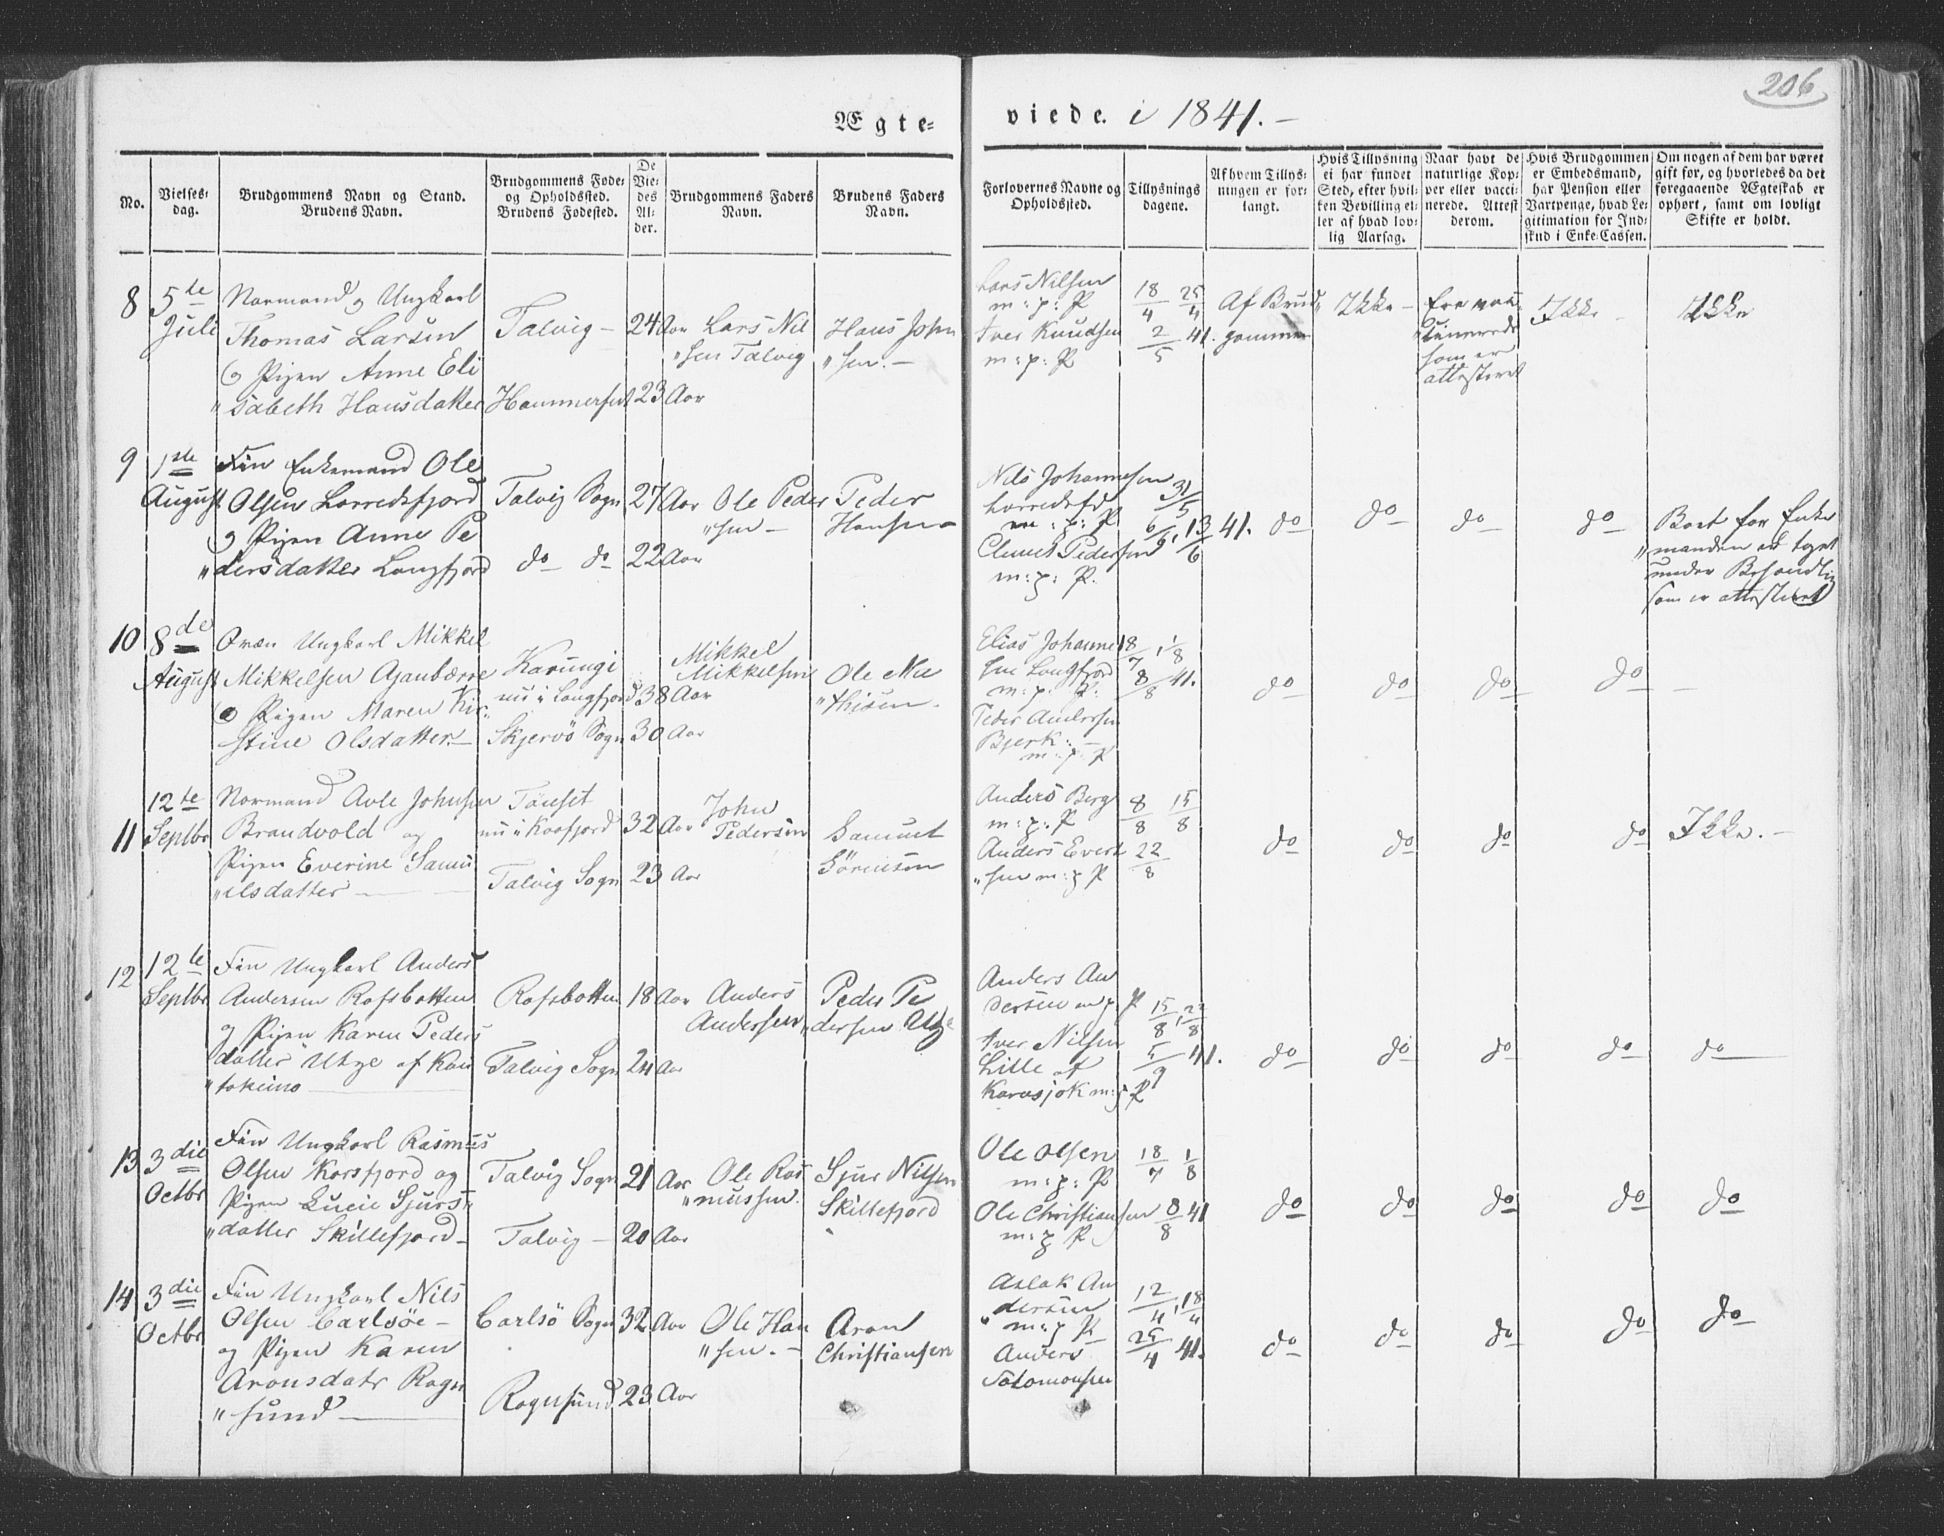 206
Ægte= viede. i 1841. –
No.
Vielses-
dag.
Brudgommens Navn og Stand.
Brudens Navn.
Brudgommens Føde-
og Opholdssted.
Brudens Fødested.
De
Vie-
des
Al-
der.
Brudgommens Faders
Navn.
Brudens Faders
Navn.
Forlovernes Navne og
Opholdssted.
Tillysnings
dagene.
Af hvem Tillys-
ningen er for-
langt.
Hvis Tillysning
ei har fundet
Sted, efter hvil-
ken Bevilling el-
ler af hvad lov-
lig Aarsag.
Naar havt de
naturlige Kop-
per eller vacci-
nerede. Attest
derom.
Hvis Brudgommen
er Embedsmand,
har Pension eller
Vartpenge, hvad Le-
gitimation for Ind-
skud i Enke-Cassen.
Om nogen af dem har været
gift før, og hvorledes da det
foregaaende Ægteskab er
ophørt, samt om lovligt
Skifte er holdt.
8
5te
Juli
Normand og Ungkarl
Thomas Larsen
og Pigen Anne Eli
"sabeth Hansdatter
Talvig –
Hammerfest
24 Aar
23 Aar
Lars Nil
"sen Talvig
Hans John
"sen. –
Lars Nilsen
m: p: P
Iver Knudsen
m: p: P
18/4 25/4
2/5 41.
Af Brud
"gommen
Ikke –
Ere vac
"cinerede
som er
attesteret
Ikke –
Ikke
9
1ste
August
Fin Enkemand Ole
Olsen Lerredsfjord
og Pigen Anne Pe
"dersdatter Langfjord
Talvig Sogn
do do
27 Aar
22 Aar
Ole Peder
"sen –
Peder
Hansen
Nils Johannesen
m: p: P
Pedersen
m: p: P.
31/5
6/6, 13/6 41.
do
do
do
do
Boet for Enke
"manden er taget
under Behandling
som er attesteret
10
8de
August
Qvæn Ungkarl Mikkel
Mikkelsen Ajanbærre
og Pigen Maren Kir
stine Olsdatter –
Karungi
nu i Langfjord
Skjervö Sogn
38 Aar
30 Aar
Mikkel
Mikkelsen
Ole Ma
"thisen.
Elias Johanne
sen Langfjord
m: p: P.
Peder Andersen
Bjerk: –
m: p: P
18/7 1/8
8/8 41.
do
do
do
do
–
11
12te
Septbr
Normand Avle Johnsen
Brandvold og
Pigen Everine Samu
"elsdatter –
Tönset
nu i Kaafjord
Talvig Sogn
32 Aar
23 Aar
John
Pedersen
Samuel
Sörensen
Anders Berg
m: p: P
Anders Evert
"sen m: p P
8/8 15/8
22/8
do
do
do
do
Ikke. –
12
12te
Septbr
Fin Ungkarl Anders
Andersen Rafsbotten
og Pigen Karen Peders
datter Utze af Kau
"tokeino
Rafsbotten
Talvig Sogn
18 Aar
24 Aar
Anders
Andersen
Peder Pe
"dersen Utze
Anders An
dersen m p P
Iver Nilsen
Lille af
Karasjok m: p P
15/8, 22/8
5/9 41.
do
do
do
do
do
13
3die
Octbr
Fin Ungkarl Rasmus
Olsen Korsfjord og
Pigen Lucie Sjurs
"datter Skillefjord –
Talvig Sogn
Talvig –
21 Aar
20 Aar
Ole Ras
"mussen.
Sjur Nilsen
Skillefjord
Ole Olsen
m: p: P
Ole Christiansen
m: p P.
18/7 1/8
8/8 41
do
do
do
do
do
14
3die
Octbr
Fin Ungkarl Nils
Olsen Carlsöe –
og Pigen Karen
Aronsdatr Rogn
"sund –
Carlsö Sogn
Rognsund
32 Aar
23 Aar
Ole Han
"sen. –
Aron
Christiansen
Aslak An
"dersen
m: p P
Anders
Salomonsen
12/4, 18/4
25/4 41.
do
do
do
do
do